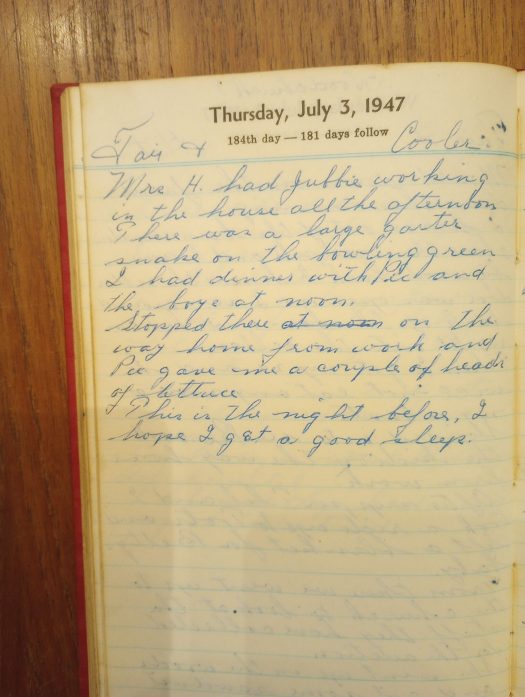 Thursday, July 3, 1947
184th day — 181 days follow
Fair & Cooler.
Mrs H. had Jubbie working
in the house all the afternoon
There was a large garter
snake on the bowling green
I had dinner with Pic and
the boys at noon.
Stopped there at noon on the
way home from work and
Pic gave me a couple of heads
of lettuce
This is the night before, I
hope I get a good sleep.